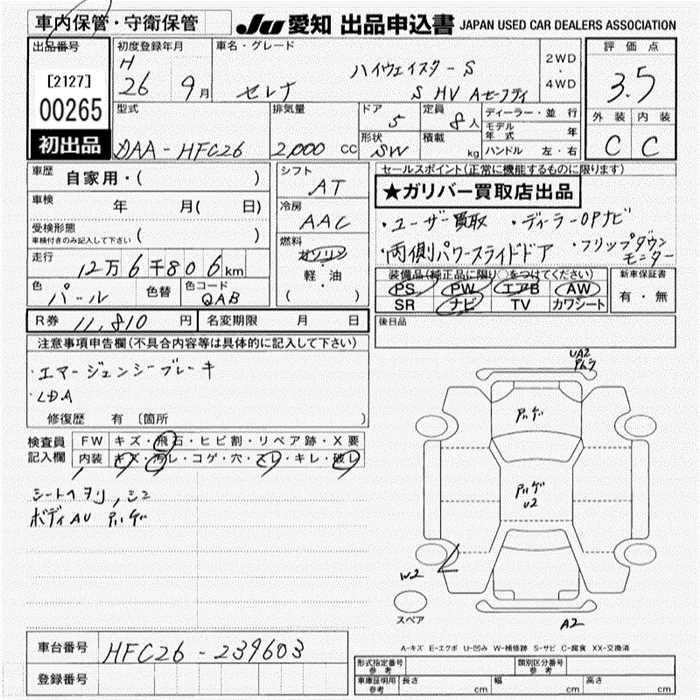 車内保管・守衛保管
JU 愛知 出品申込書 JAPAN USED CAR DEALERS ASSOCIATION
出品番号
[2127]
00265
初出品
初度登録年月
H 26 9月
車名・グレード
セレナ ハイウェイスターS
S HV Aセーフティ
2WD・4WD
評価点
3.5
外装 内装
C C
型式
DAA-HFC26
排気量
2,000 cc
ドア
5
形状
SW
定員
8人
積載
kg
ディーラー・並行
モデル年式 年
ハンドル 左・右
車歴 自家用・( )
車検 年 月( 日)
受検形態
車検付きのみ記入して下さい ( )
走行
12万6千806km
色
パール
色替
色コード
QAB
シフト
AT
冷房
AAC
燃料
ガソリン
軽・油
( )
セールスポイント(正常に機能するものに限ります)
★ガリバー買取店出品
・ユーザー買取 ・ディーラーOPナビ
・両側パワースライドドア ・フリップダウンモニター
装備品(純正品に限り○をつけてください)
PS PW エアB AW
SR ナビ TV カワシート
新車保証書
有・無
R券 11,810 円 名変期限 月 日
後日品
注意事項申告欄(不具合内容等は具体的に記入して下さい)
・エマージェンシーブレーキ
・LDA
修復歴 有 〔箇所 〕
検査員記入欄
FW キズ・飛石・ヒビ割・リペア跡・X要
内装 キズ・汚レ・コゲ・穴・スレ・キレ・破レ
シートヘタリ、シワ
ボディAU アルゲ
UA2
アルゲ
アルゲ
U2
W2
A2
スペア
A-キズ E-エクボ U-凹み W-補修跡 S-サビ C-腐食 XX-交換済
車台番号 HFC26-239603
登録番号
形式指定番号
参考
類別区分番号
参考
車庫証明用
参考
長さ cm 幅 cm 高さ cm